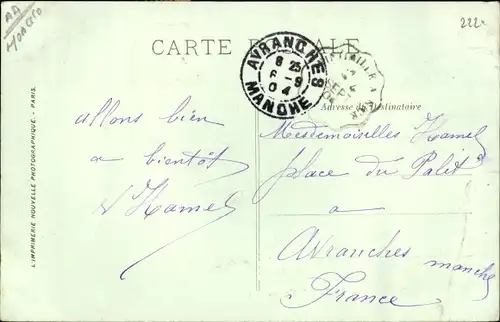 AA
222-
CARTE POSTALE
AVRANCHES
8 25
6-9
04
MANCHE
SEPT
Adresse du Destinataire
allons bien
a bientôt
Hamel
Mesdemoiselles Hamel
place du Palet
a
Avranches manche
France
L'IMPRIMERIE NOUVELLE PHOTOGRAPHIQUE - PARIS.